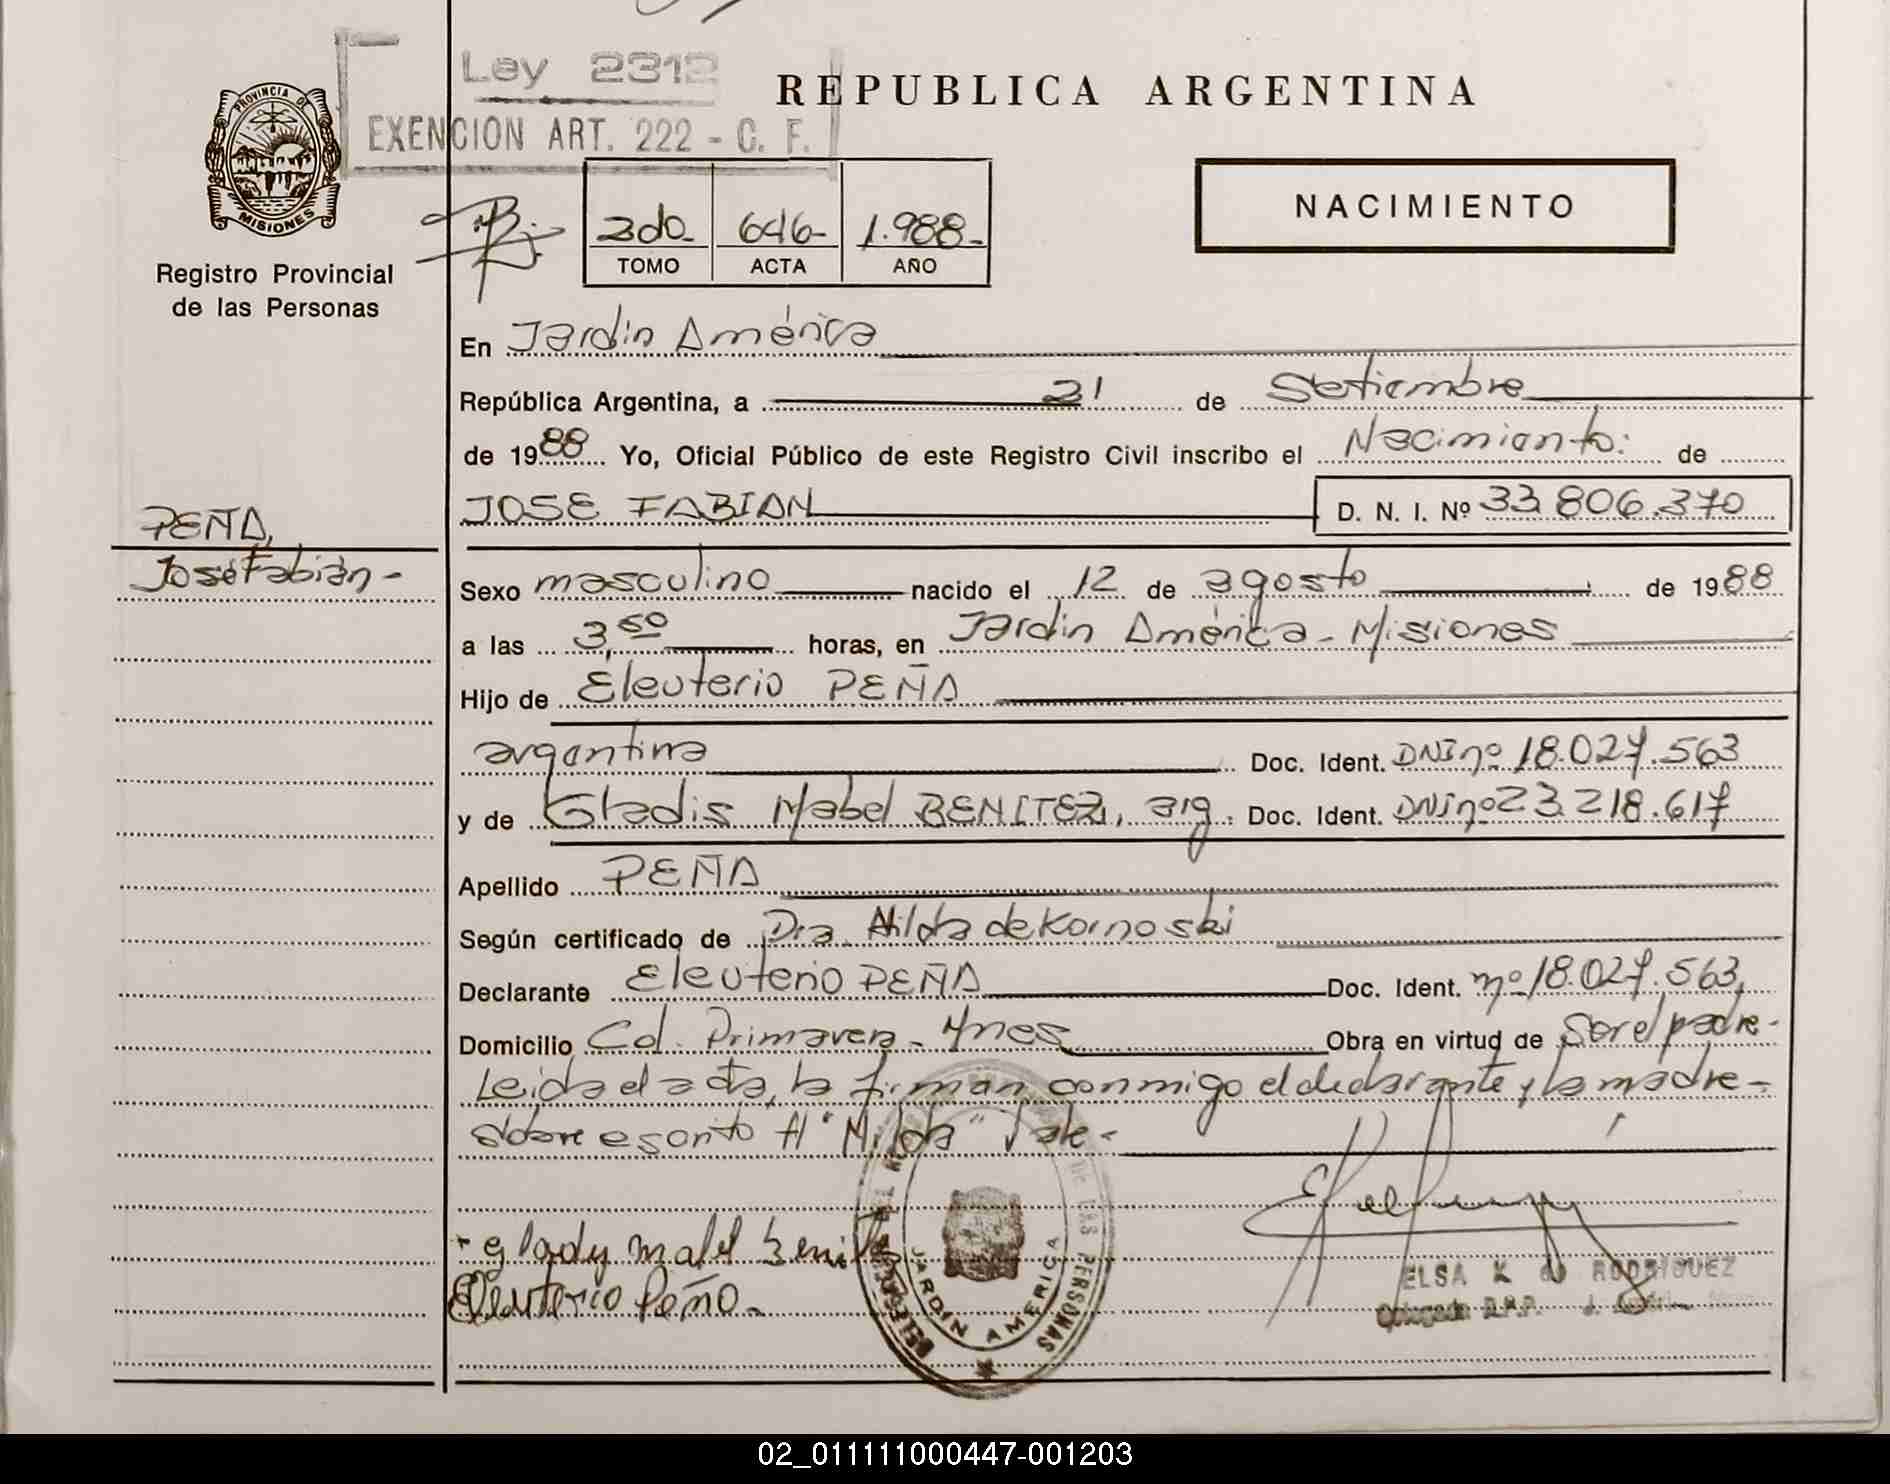 Ley 2312
EXENCION ART. 222 - C. F.
REPUBLICA ARGENTINA
PROVINCIA DE
MISIONES
Registro Provincial
de las Personas
2do. 646- 1.988-
TOMO ACTA AÑO
NACIMIENTO
En Jardín América
República Argentina, a 21 de Setiembre
de 1988 Yo, Oficial Público de este Registro Civil inscribo el Nacimiento: de
JOSE FABIAN D. N. I. Nº 33.806.370
PEÑA,
José Fabián-
Sexo masculino nacido el 12 de agosto de 1988
a las 3,50 horas, en Jardín América - Misiones
Hijo de Eleuterio PEÑA
argentina Doc. Ident. DNI nº 18.027.563
y de Gladis Mabel BENITEZ, arg. Doc. Ident. DNI nº 23.218.617
Apellido PEÑA
Según certificado de Dra. Hilda de Kornoski
Declarante Eleuterio PEÑA Doc. Ident. nº 18.027.563,
Domicilio Col. Primavera - Mnes Obra en virtud de Ser el padre-
Leida el acta, la firman conmigo el declarante y la madre-
sobre escrito H "Hilda" Vale-
glady mabel Benitez
Eleuterio Peña.
DE LAS PERSONAS
JARDIN AMERICA
ELSA K de RODRIGUEZ
Delegada R.P.P.
02_011111000447-001203